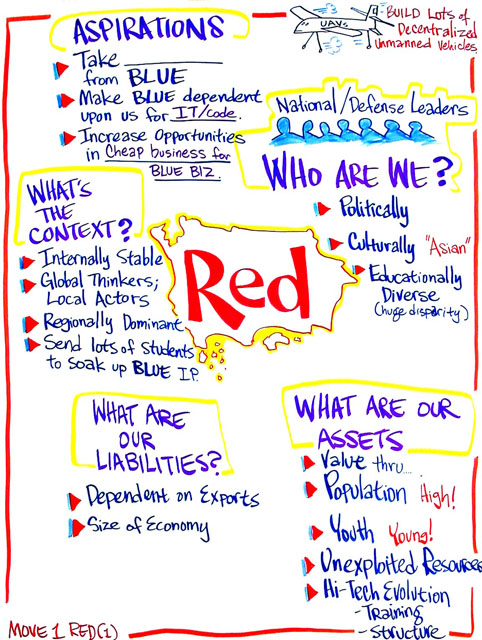 ASPIRATIONS
Take ________
from BLUE
Make BLUE dependent
upon us for IT/code.
Increase Opportunities
in Cheap business for
BLUE BIZ.
UAVs
BUILD Lots of
Decentralized
Unmanned Vehicles.
National/Defense Leaders
WHO ARE WE?
Politically
Culturally "Asian"
Educationally
Diverse
(huge disparity)
WHAT'S
THE
CONTEXT?
Internally Stable
Global Thinkers;
Local Actors
Regionally Dominant
Send lots of students
to soak up BLUE I.P.
Red
WHAT ARE
OUR
LIABILITIES?
Dependent on Exports
Size of Economy
WHAT ARE OUR
ASSETS
Value thru....
Population High!
Youth Young!
Unexploited Resources
Hi-Tech Evolution
-Training
-Structure
MOVE 1 RED(1)